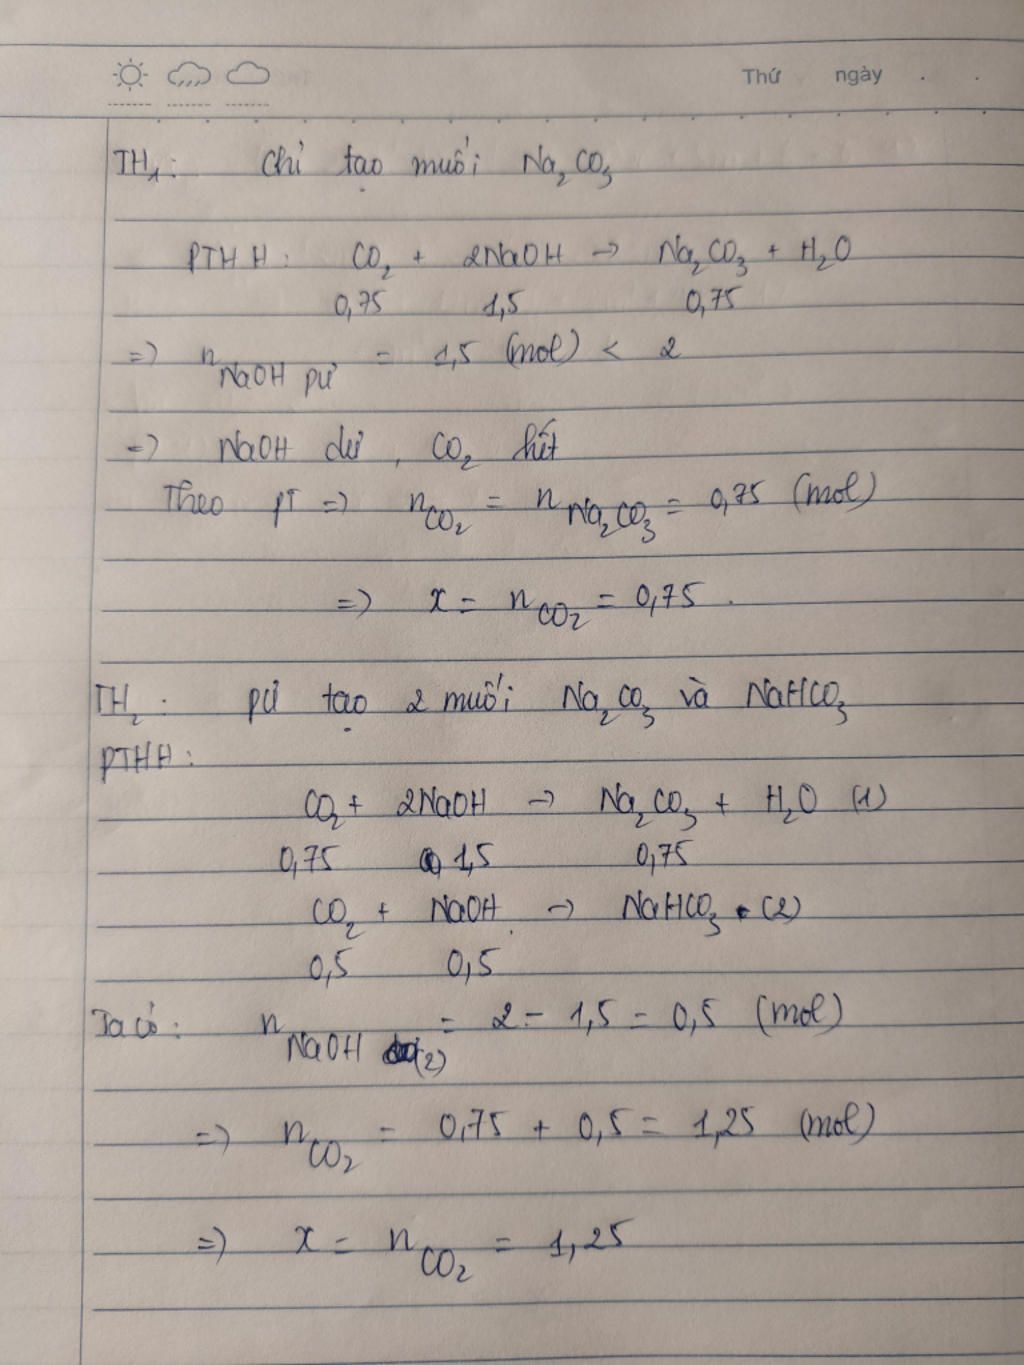 Thứ ngày . .
TH₁: Chỉ tạo muối Na₂CO₃
PTHH: CO₂ + 2NaOH → Na₂CO₃ + H₂O
0,75 1,5 0,75
=> n NaOH pư = 1,5 (mol) < 2
=> NaOH dư, CO₂ hết
Theo PT => n CO₂ = n Na₂CO₃ = 0,75 (mol)
=> x = n CO₂ = 0,75.
TH₂: pư tạo 2 muối Na₂CO₃ và NaHCO₃
PTHH:
CO₂ + 2NaOH → Na₂CO₃ + H₂O (1)
0,75 1,5 0,75
CO₂ + NaOH → NaHCO₃ (2)
0,5 0,5
Ta có: n NaOH (2) = 2 - 1,5 = 0,5 (mol)
=> n CO₂ = 0,75 + 0,5 = 1,25 (mol)
=> x = n CO₂ = 1,25